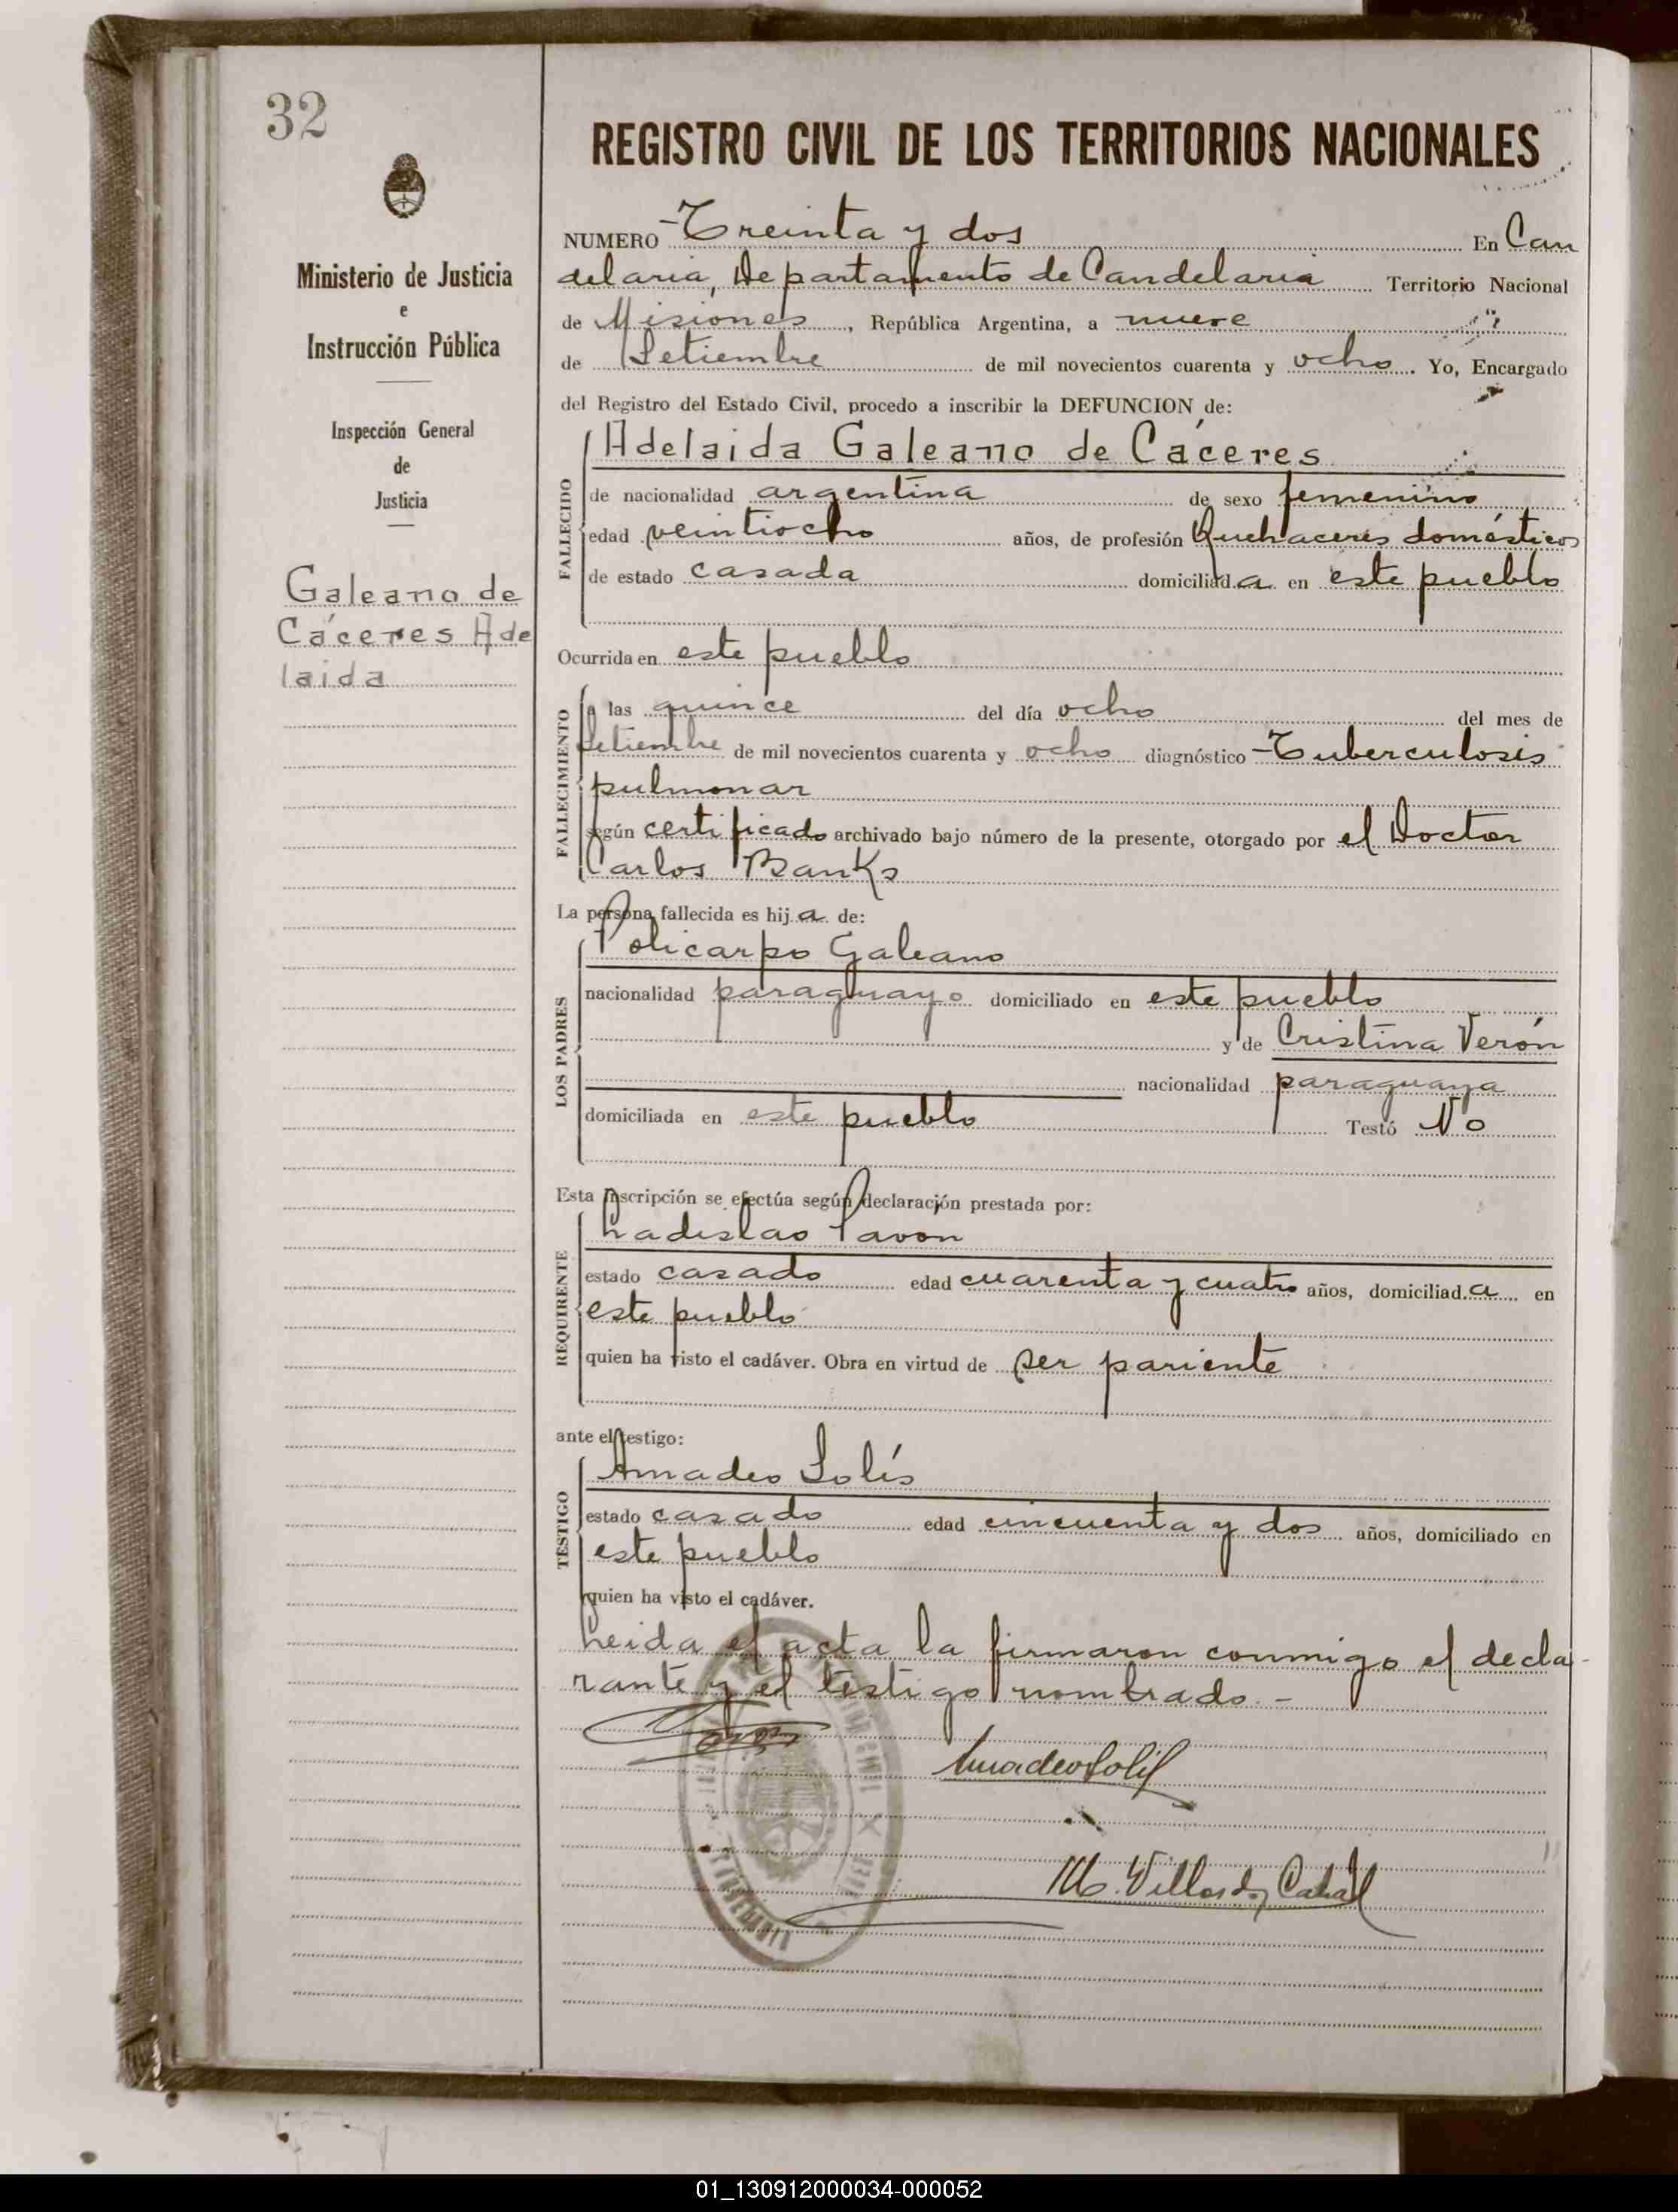 32
Ministerio de Justicia
e
Instrucción Pública
Inspección General
de
Justicia
Galeano de
Cáceres Ade
laida
REGISTRO CIVIL DE LOS TERRITORIOS NACIONALES
NUMERO Treinta y dos En Can
delaria, Departamento de Candelaria Territorio Nacional
de Misiones, República Argentina, a nueve
de Setiembre de mil novecientos cuarenta y ocho. Yo, Encargado
del Registro del Estado Civil, procedo a inscribir la DEFUNCION de:
FALLECIDO
Adelaida Galeano de Cáceres
de nacionalidad argentina de sexo femenino
edad veintiocho años, de profesión Quehaceres domésticos
de estado casada domiciliad a en este pueblo
Ocurrida en este pueblo
FALLECIMIENTO
a las quince del día ocho del mes de
Setiembre de mil novecientos cuarenta y ocho diagnóstico Tuberculosis
pulmonar
según certificado archivado bajo número de la presente, otorgado por el Doctor
Carlos Banks
La persona fallecida es hij a de:
LOS PADRES
Policarpo Galeano
nacionalidad paraguayo domiciliado en este pueblo
y de Cristina Verón
nacionalidad paraguaya
domiciliada en este pueblo Testó No
Esta inscripción se efectúa según declaración prestada por:
REQUIRENTE
Ladislao Pavon
estado casado edad cuarenta y cuatro años, domiciliad a en
este pueblo
quien ha visto el cadáver. Obra en virtud de ser pariente
ante el testigo:
TESTIGO
Amadeo Solís
estado casado edad cincuenta y dos años, domiciliado en
este pueblo
quien ha visto el cadáver.
Leida el acta la firmaron conmigo el decla-
rante y el testigo nombrado. -
Amadeo Solis
M. Cabal
01_130912000034-000052